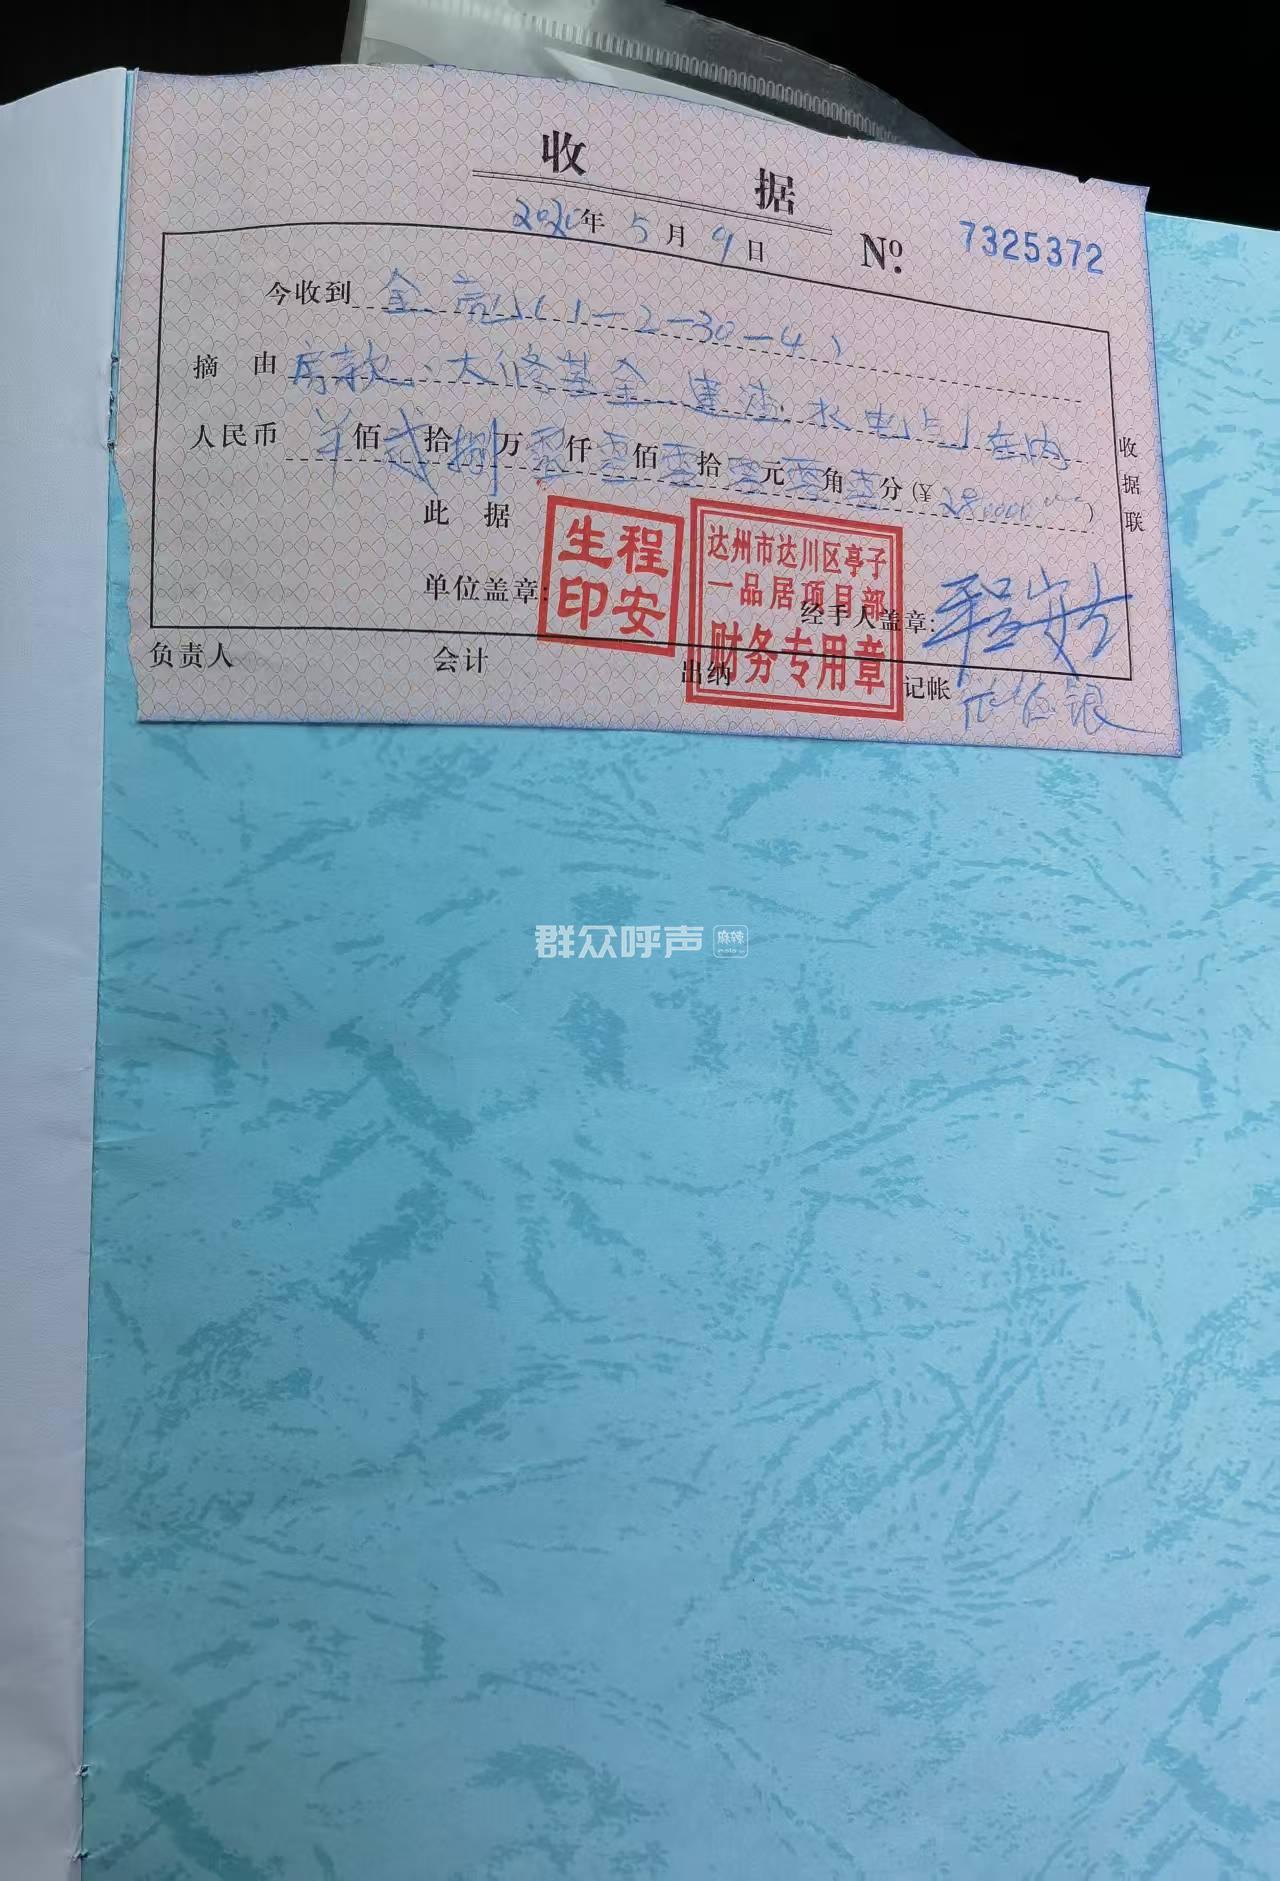 收 据
2020年 5月 9日 № 7325372
今收到 金亮 (1-2-30-4)
摘 由 房款、大修基金 建渣 水电 在内
人民币 羊佰贰拾捌万零仟零佰零拾零元零角零分(¥ 280000.00)
此 据
收据联
单位盖章:
程安生印
达州市达川区亭子
一品居项目部
财务专用章
经手人盖章: 程安生
负责人 会计 出纳 记帐
群众呼声 麻辣